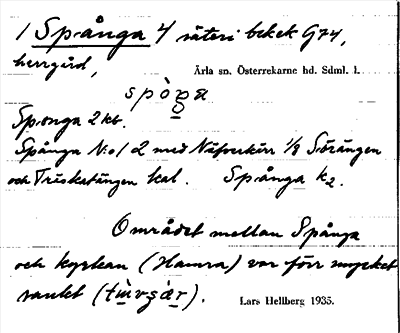 1 Spånga 4 säteri bebek G74,
herrgård,
Ärla sn. Österrekarne hd. Sdml. l.
spò̀ŋa
Sponga 2 kb.
Spånga N:o 1 2 med Näfverkärr 1/8 Sörängen
och Träskatängen kat. Spånga k2.
Området mellan Spånga
och kyrkan (Hamra) var förr mycket
sankt
Lars Hellberg 1935.